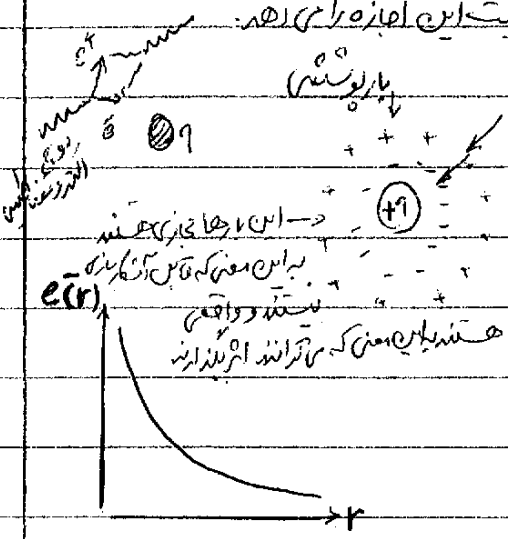 یت این اجازه را می دهد.
e+
بار پوششی
e-
q
موج
الکترومغناطیسی
+q
این بارها مجازی هستند
به این معنی که قابل آشکارسازی
نیستند و واقعی
هستند به این معنی که می توانند اثر بگذارند
e(r)
r